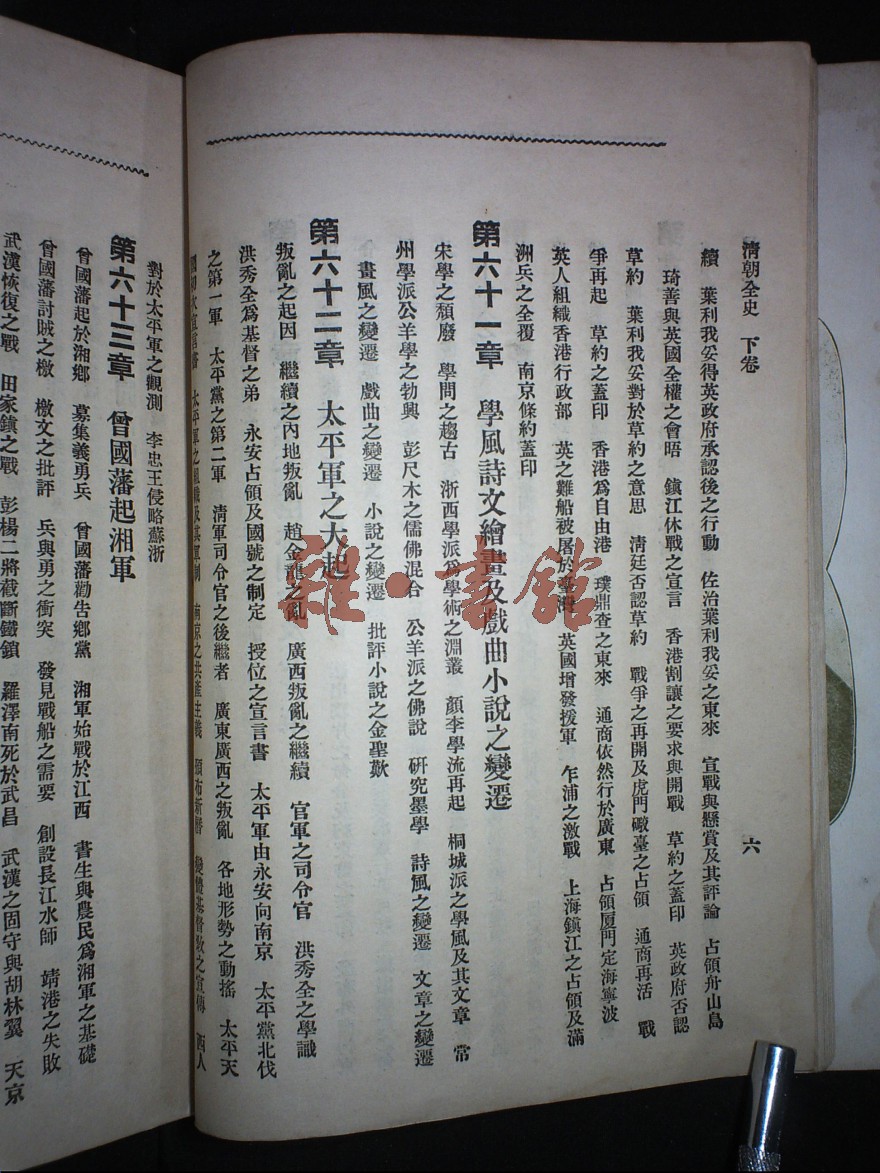 清朝全史 下卷 六
續 葉利我妥得英政府承認後之行動 佐治葉利我妥之東來 宣戰與懸賞及其評論 占領舟山島
琦善與英國全權之會晤 鎮江休戰之宣言 香港割讓之要求與開戰 草約之蓋印 英政府否認
草約 葉利我妥對於草約之意思 清廷否認草約 戰爭之再開及虎門礮臺之占領 通商再活 戰
爭再起 草約之蓋印 香港爲自由港 璞鼎查之東來 通商依然行於廣東 占領厦門定海寧波
英人組織香港行政部 英之難船被屠於臺灣 英國增發援軍 乍浦之激戰 上海鎮江之占領及滿
洲兵之全覆 南京條約蓋印
第六十一章 學風詩文繪畫及戲曲小說之變遷
宋學之頹廢 學問之趨古 浙西學派爲學術之淵叢 顏李學流再起 桐城派之學風及其文章 常
州學派公羊學之勃興 彭尺木之儒佛混合 公羊派之佛說 研究墨學 詩風之變遷 文章之變遷
畫風之變遷 戲曲之變遷 小說之變遷 批評小說之金聖歎
第六十二章 太平軍之大起
叛亂之起因 繼續之內地叛亂 趙金龍之亂 廣西叛亂之繼續 官軍之司令官 洪秀全之學識
洪秀全爲基督之弟 永安占領及國號之制定 授位之宣言書 太平軍由永安向南京 太平黨北伐
之第一軍 太平黨之第二軍 清軍司令官之後繼者 廣東廣西之叛亂 各地形勢之動搖 太平天
太平軍之組織及其軍制 南京之共產主義 頒布新曆 變體基督教之宣傳 西人
對於太平軍之觀測 李忠王侵略蘇浙
第六十三章 曾國藩起湘軍
曾國藩起於湘鄉 募集義勇兵 曾國藩勸告鄉黨 湘軍始戰於江西 書生與農民爲湘軍之基礎
曾國藩討賊之檄 檄文之批評 兵與勇之衝突 發見戰船之需要 創設長江水師 靖港之失敗
武漢恢復之戰 田家鎮之戰 彭楊二將截斷鐵鎖 羅澤南死於武昌 武漢之固守與胡林翼 天京
雜·書館